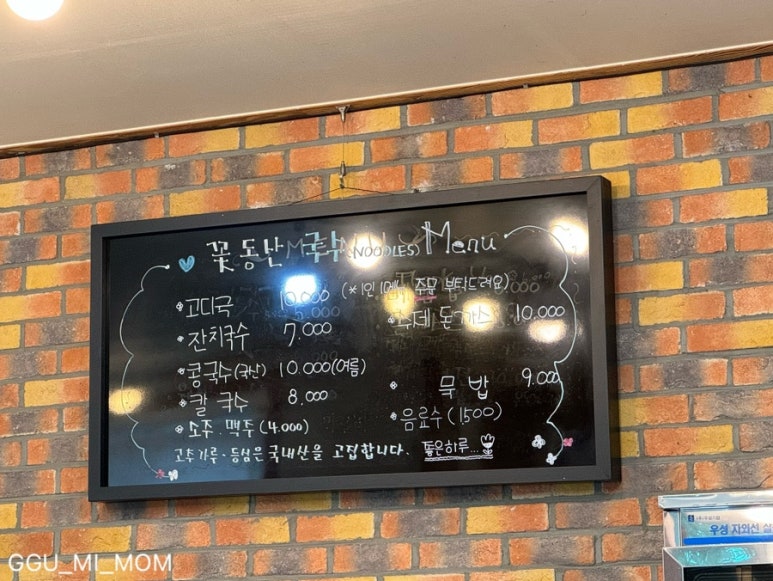 꽃동산 국수 (NOODLES) Menu
(*1인 1메뉴 주문 부탁드려요)
고디국 10,000
잔치국수 7,000
콩국수(국산) 10,000(여름)
칼국수 8,000
소주·맥주 (4,000)
수제 돈가스 10,000
묵밥 9,000
음료수(1500)
고추가루·등심은 국내산을 고집합니다.
좋은하루...
우성 자외선 살
GGU_MI_MOM